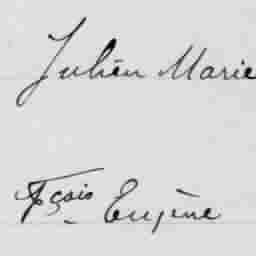 Julien Marie
Fçois Eugène